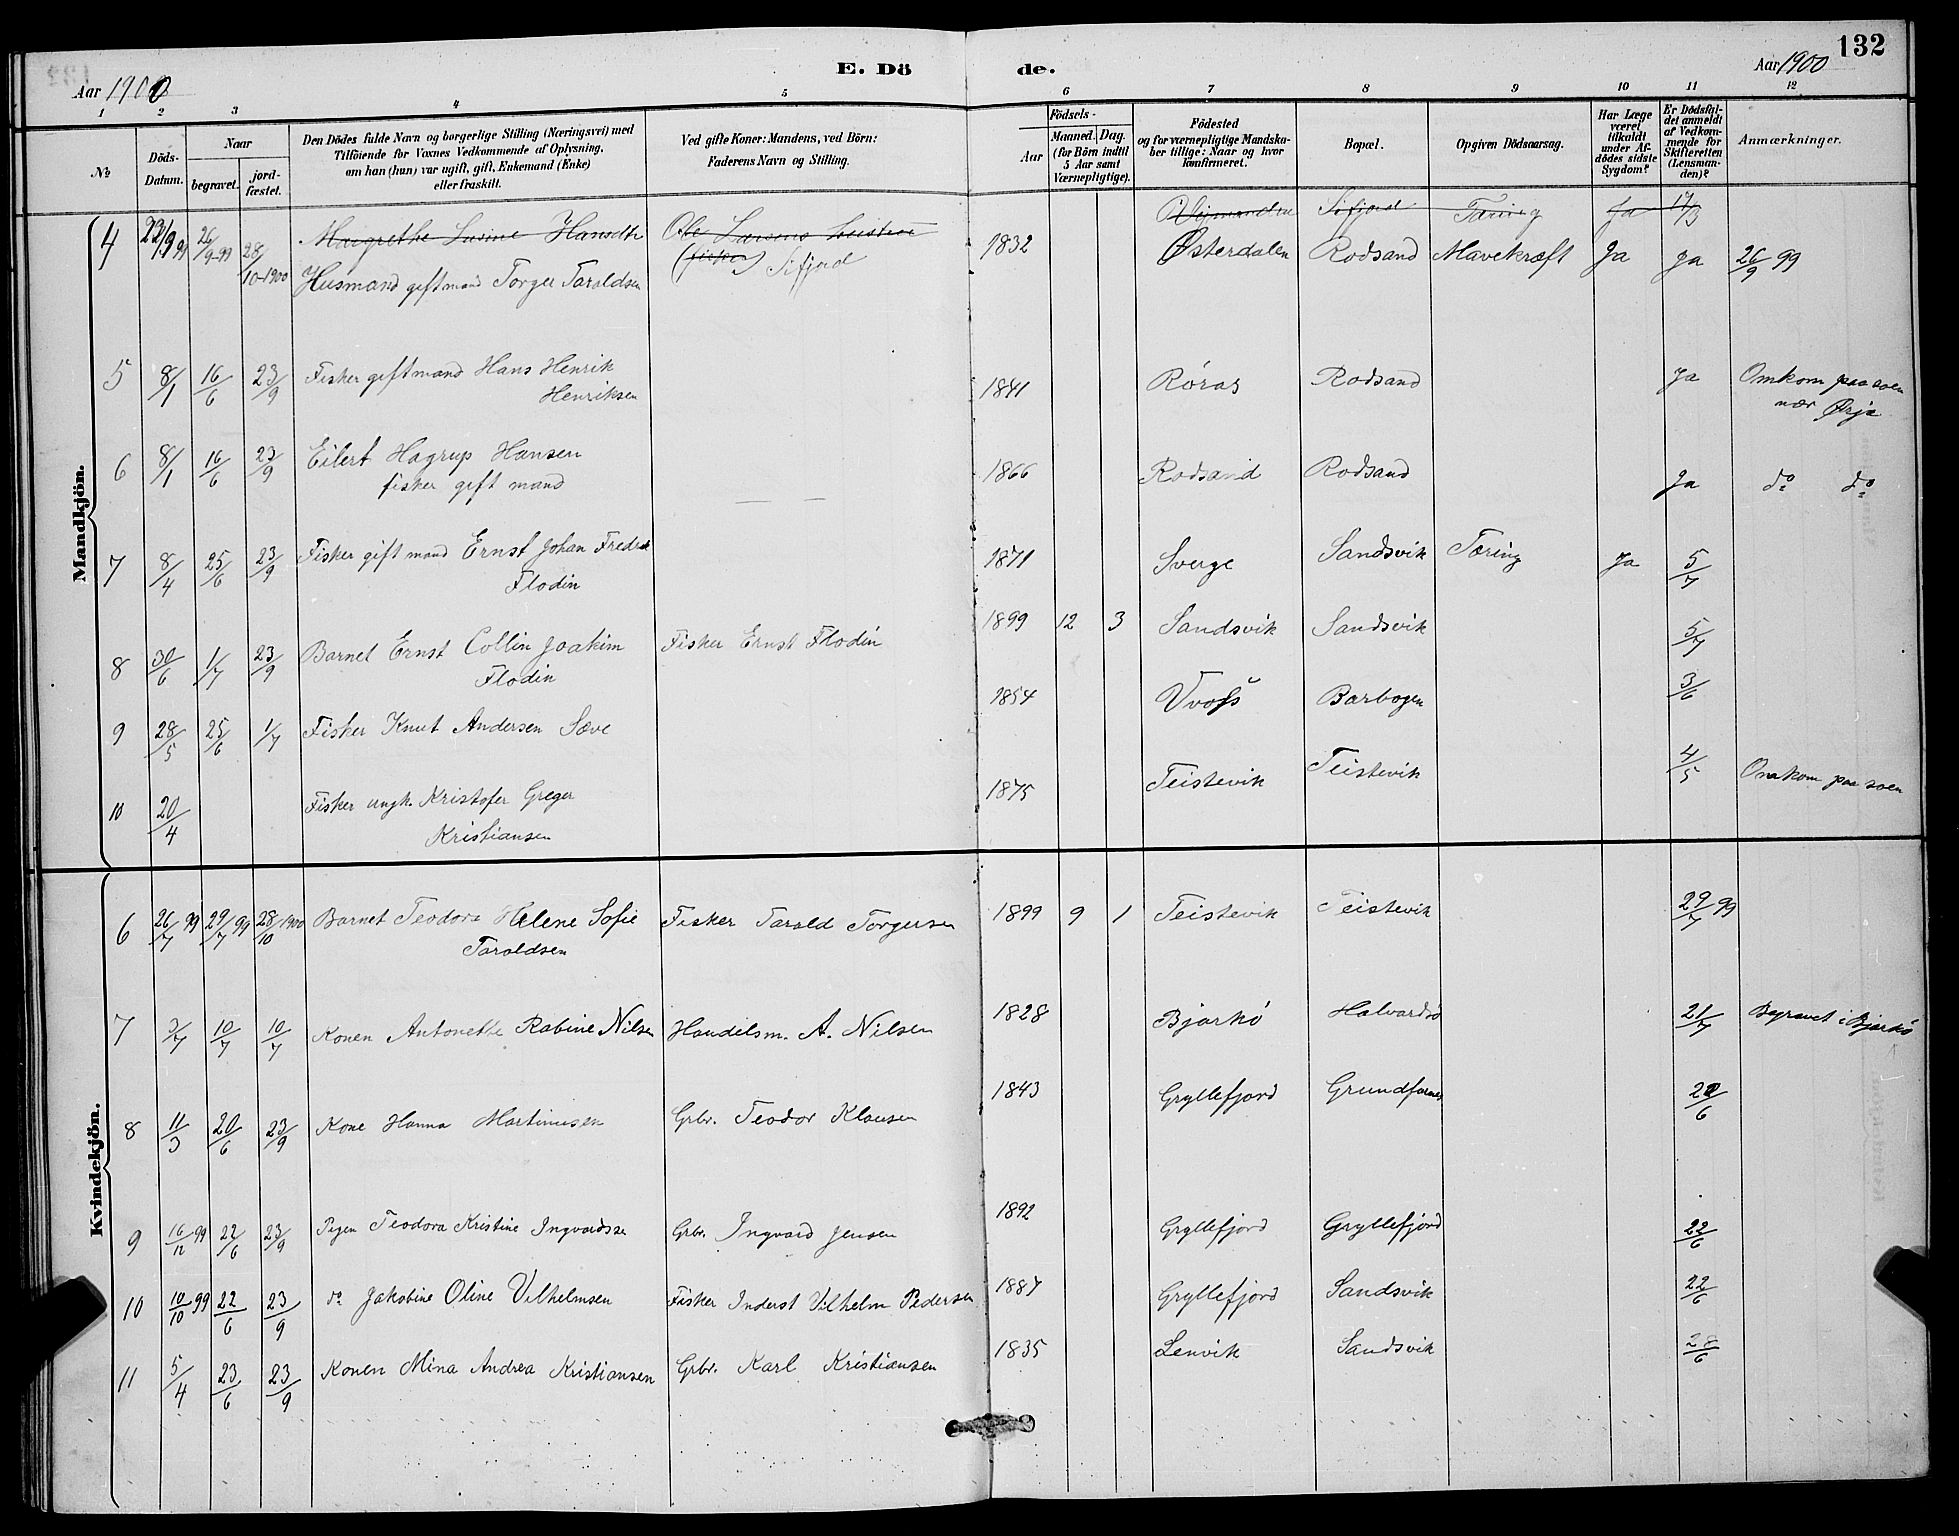 132
E. Dö de.
Aar 1900
Aar 1900
1 2 3 4 5 6 7 8 9 10 11 12
No
Döds-Datum.
Naar
begravet.
jord-fæstet.
Den Dödes fulde Navn og borgerlige Stilling (Næringsvei) med
Tilföiende for Voxnes Vedkommende af Oplysning,
om han (hun) var ugift, gift, Enkemand (Enke)
eller fraskilt.
Ved gifte Koner: Mandens, ved Börn:
Faderens Navn og Stilling.
Födsels-
Aar
Maaned. Dag.
(for Börn indtil
5 Aar samt
Værnepligtige).
Födested
og for værnepligtige Mandska-
ber tillige: Naar og hvor
konfirmeret.
Bopæl.
Opgiven Dödsaarsag.
Har Læge
været
tilkaldt
under Af-
dødes sidste
Sygdom?
Er Dödsfal-
det anmeldt
af Vedkom-
mende for
Skifteretten
(Lensman-
den)?
Anmærkninger.
Mandkjön.
Margrethe Lasine Hansdtr Ole Larsens Sifjord Tæring Ja 17/3
(fisker) Sifjord
4 23/9 99 26/9-99 28/10-1900 Husmand giftmand Torger Taraldsen 1832 Østerdalen Rodsand Mavekræft Ja Ja 26/9 99
5 8/1 16/6 23/9 Fisker giftmand Hans Henrik
Henriksen 1841 Røraas Rodsand Ja Omkom paa soen
nær
6 8/1 16/6 23/9 Eilert Hagrup Hansen
fisker gift mand 1866 Rodsand Rodsand Ja do do
7 8/4 25/6 23/9 Fisker gift mand Ernst Johan Fredrik
Flodin 1871 Sverge Sandsvik Tæring Ja 5/7
8 30/6 1/7 23/9 Barnet Ernst Collin Joakim
Flodin Fisker Ernst Flodin 1899 12 3 Sandsvik Sandsvik 5/7
9 28/5 25/6 1/7 Fisker Knut Andersen Sæve 1854 Barbogen 3/6
10 20/4 Fisker ungk. Kristofer Greger
Kristiansen 1875 Teistevik Teistevik 4/5 Omkom paa soen
Kvindekjön.
6 26/7 99 29/7 99 28/10 1900 Barnet Teodora Helene Sofie
Taraldsen Fisker Tarald Torgersen 1899 9 1 Teistevik Teistevik 29/7 99
7 3/7 10/7 10/7 Konen Antonette Rabine Nilsen Handelsm. A. Nilsen 1828 Bjarkö Halvardsö 21/7 Begravet i Bjarkö
8 11/3 20/6 23/9 Kone Hanna Martinusen Grbr. Teodor Klausen 1843 Gryllefjord Grundfarnes 22/6
9 16/12 99 22/6 23/9 Pigen Teodora Kristine Ingvardsen Grbr. Ingvard Jensen 1892 Gryllefjord Gryllefjord 22/6
10 10/10 99 22/6 23/9 do Jakobine Oline Vilhelmsen Fisker Inderst Vilhelm Pedersen 1887 Gryllefjord Sandsvik 22/6
11 5/4 23/6 23/9 Konen Mina Andrea Kristiansen Grbr. Karl Kristiansen 1835 Lenvik Sandsvik 28/6